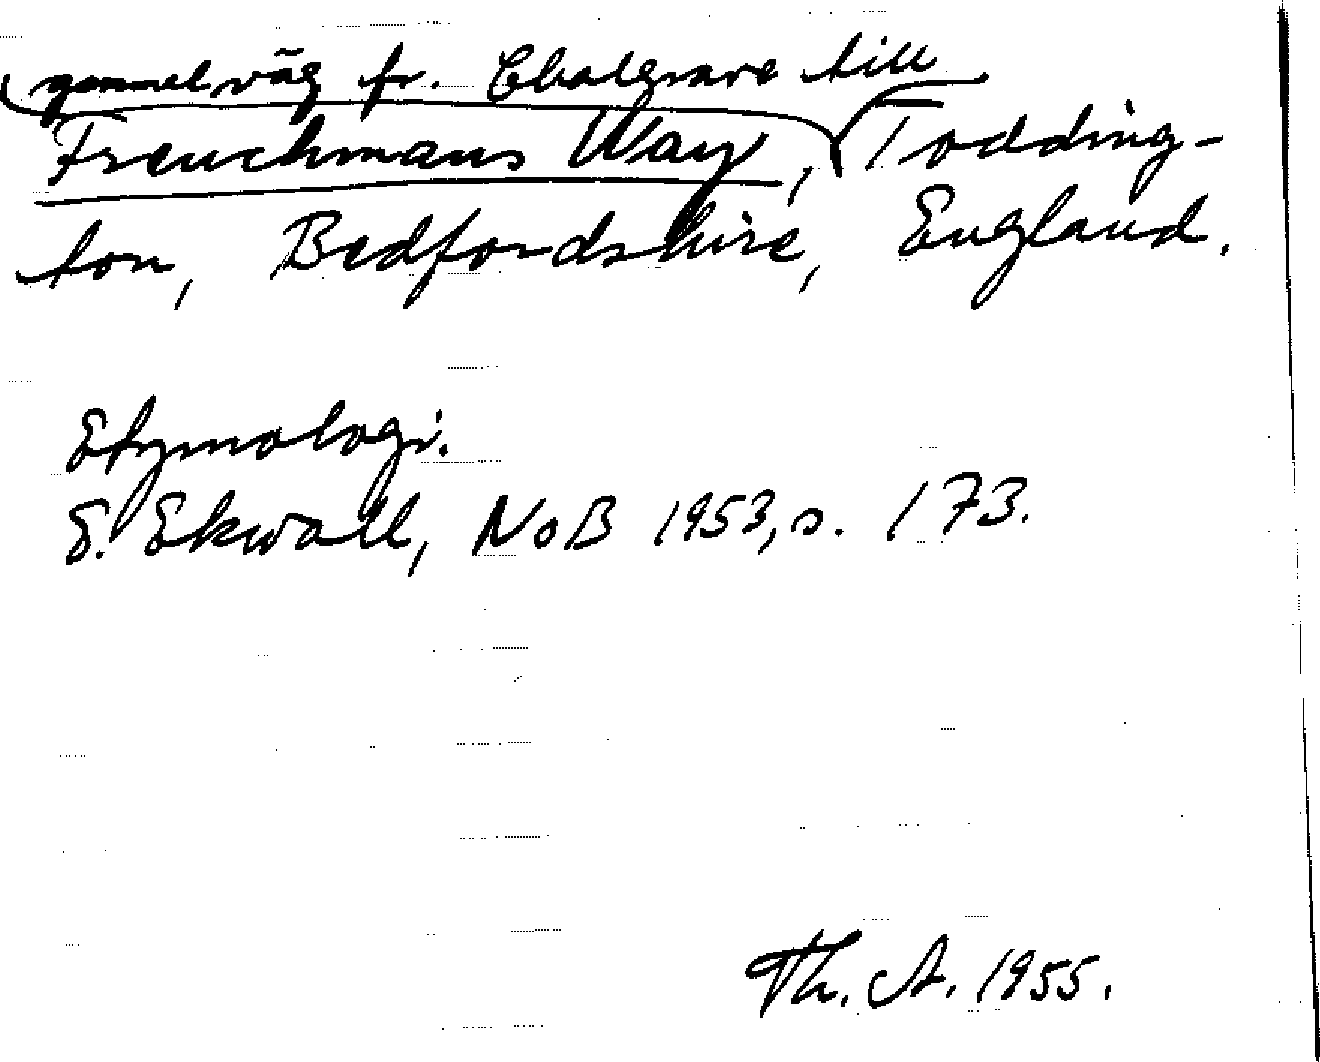 gammal väg fr. Chalgrave till
Frenchmans Way, Todding-
ton, Bedfordshire, England.
Etymologi.
E. Ekwall, NoB 1953, s. 173.
Th. A. 1955.